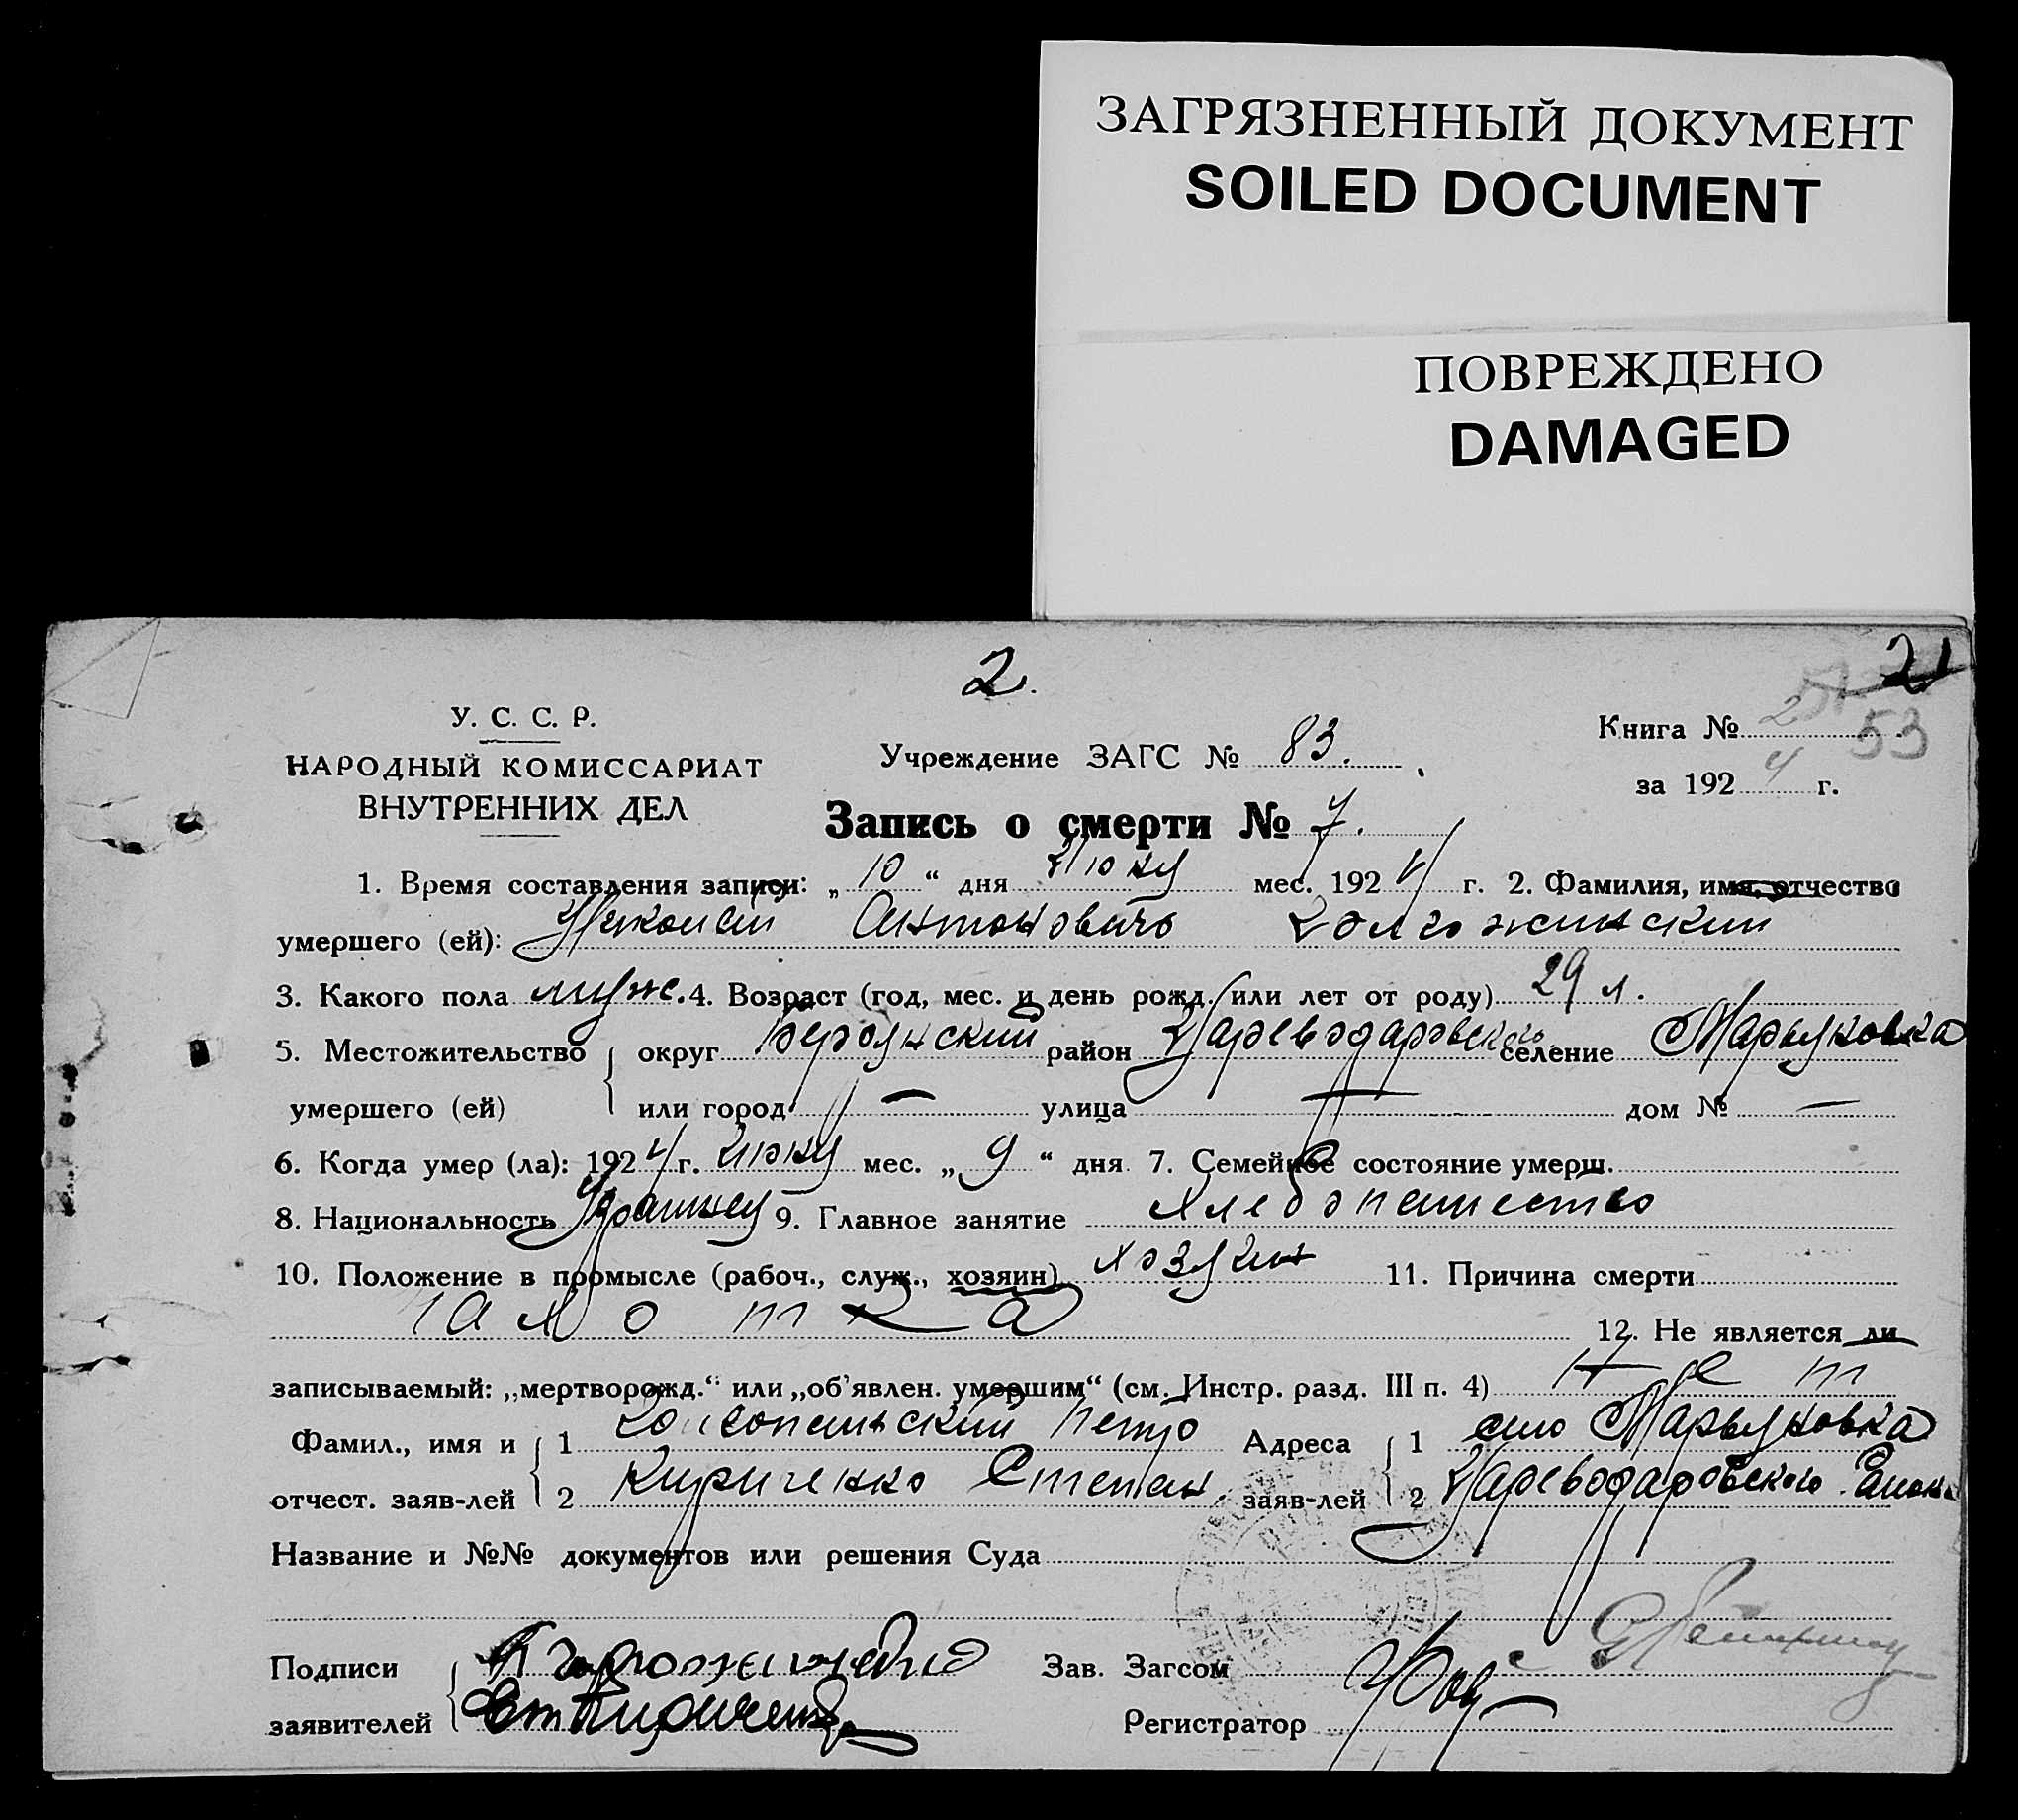 ЗАГРЯЗНЕННЫЙ ДОКУМЕНТ
SOILED DOCUMENT
ПОВРЕЖДЕНО
DAMAGED
2. 21
У. С. С. Р.
НАРОДНЫЙ КОМИССАРИАТ
ВНУТРЕННИХ ДЕЛ
Учреждение ЗАГС № 83.
Книга № 2 53
за 1924 г.
Запись о смерти № 7.
1. Время составления записи: „10“ дня мес. 1924 г. 2. Фамилия, имя, отчество
умершего (ей): Николай Антонович
3. Какого пола муж. 4. Возраст (год, мес. и день рожд. или лет от роду) 29 л.
5. Местожительство округ район Цареводаровского селение Марьяновка
умершего (ей) или город — улица — дом № —
6. Когда умер (ла): 1924 г. мес. „9“ дня 7. Семейное состояние умерш.
8. Национальность 9. Главное занятие хлебопашество
10. Положение в промысле (рабоч., служ., хозяин) хозяин 11. Причина смерти
чахотка 12. Не является ли
записываемый: „мертворожд.“ или „об'явлен. умершим“ (см. Инстр. разд. III п. 4) Нет
Фамил., имя и 1 Петро Адреса 1 село Марьяновка
отчест. заяв-лей 2 Кириченко Степан заяв-лей 2 Цареводаровского
Название и №№ документов или решения Суда
Подписи Зав. Загсом
заявителей Ст Кириченко Регистратор